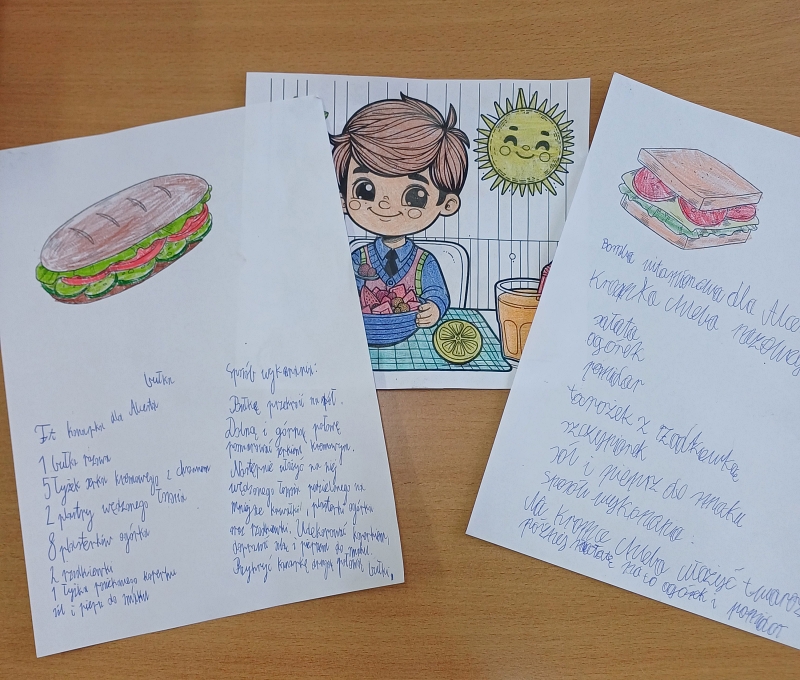 bułka
Fit kanapka dla Alicta
1 bułka razowa
5 łyżek serka kremowego z chrzanem
2 plastry wędzonego łososia
8 plasterków ogórka
2 rzodkiewki
1 łyżka posiekanego koperku
sól i pieprz do smaku
Sposób wykonania:
Bułkę przekroić na pół.
Dolną i górną połowę
posmarować serkiem kremowym.
Następnie ułożyć na niej
wędzonego łososia podzielonego na
mniejsze kawałki, plasterki ogórka
oraz rzodkiewki. Udekorować koperkiem,
doprawić solą i pieprzem do smaku.
Przykryć kanapkę drugą połową bułki.
Bomba witaminowa dla
Kromka chleba razowego
sałata
ogórek
pomidor
twarożek z rzodkiewką
szczypiorek
sól i pieprz do smaku
sposób wykonania:
Na kromce chleba ułożyć
później sałatę na to ogórek i pomidor